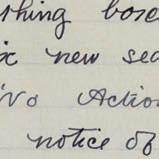 thing boxe
ix new sea
'No Action
notice of